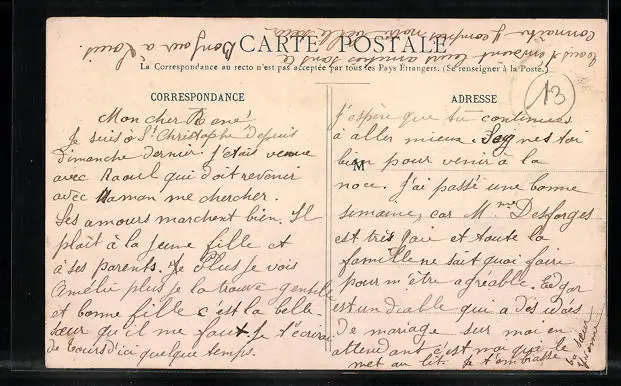 CARTE POSTALE
La Correspondance au recto n'est pas acceptée par tous les Pays Étrangers. (Se renseigner à la Poste.)
CORRESPONDANCE
Mon cher René
Je suis à St Christophe depuis
Dimanche dernier. J'étais venue
avec Raoul qui doit revenir
avec Maman me chercher.
Les amours marchent bien. Il
plaît à la jeune fille et
à ses parents. Je plus je vois
Amélie plus je la trouve gentille
et bonne fille c'est la belle-
sœur qu'il me faut. Je t'écrirai
de Tours d'ici quelque temps.
ADRESSE
13
M
J'espère que tu continues
à aller mieux. Soignes toi
bien pour venir à la
noce. J'ai passé une bonne
semaine, car Mme Desforges
est très gaie et toute la
famille ne sait quoi faire
pour m'être agréable. Edgar
est un diable qui a des idées
de mariage sur moi en
attendant c'est moi qui le
met au lit. Je t'embrasse
ta sœur
Tous t'envoient leurs amitiés dont le
connaître y compris ma belle sœur
Bonjour à Louis.